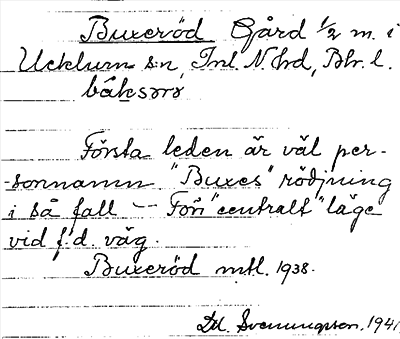 Buxeröd Gård 1/2 m. i
Ucklum s:n, Inl. N. hrd, Bhr. l.
Första leden är väl per-
-sonnamn "Buxes" rödjning
i så fall — För "centralt" läge
vid f.d. väg.
Buxeröd mtl. 1938.
Svenungsson. 1941